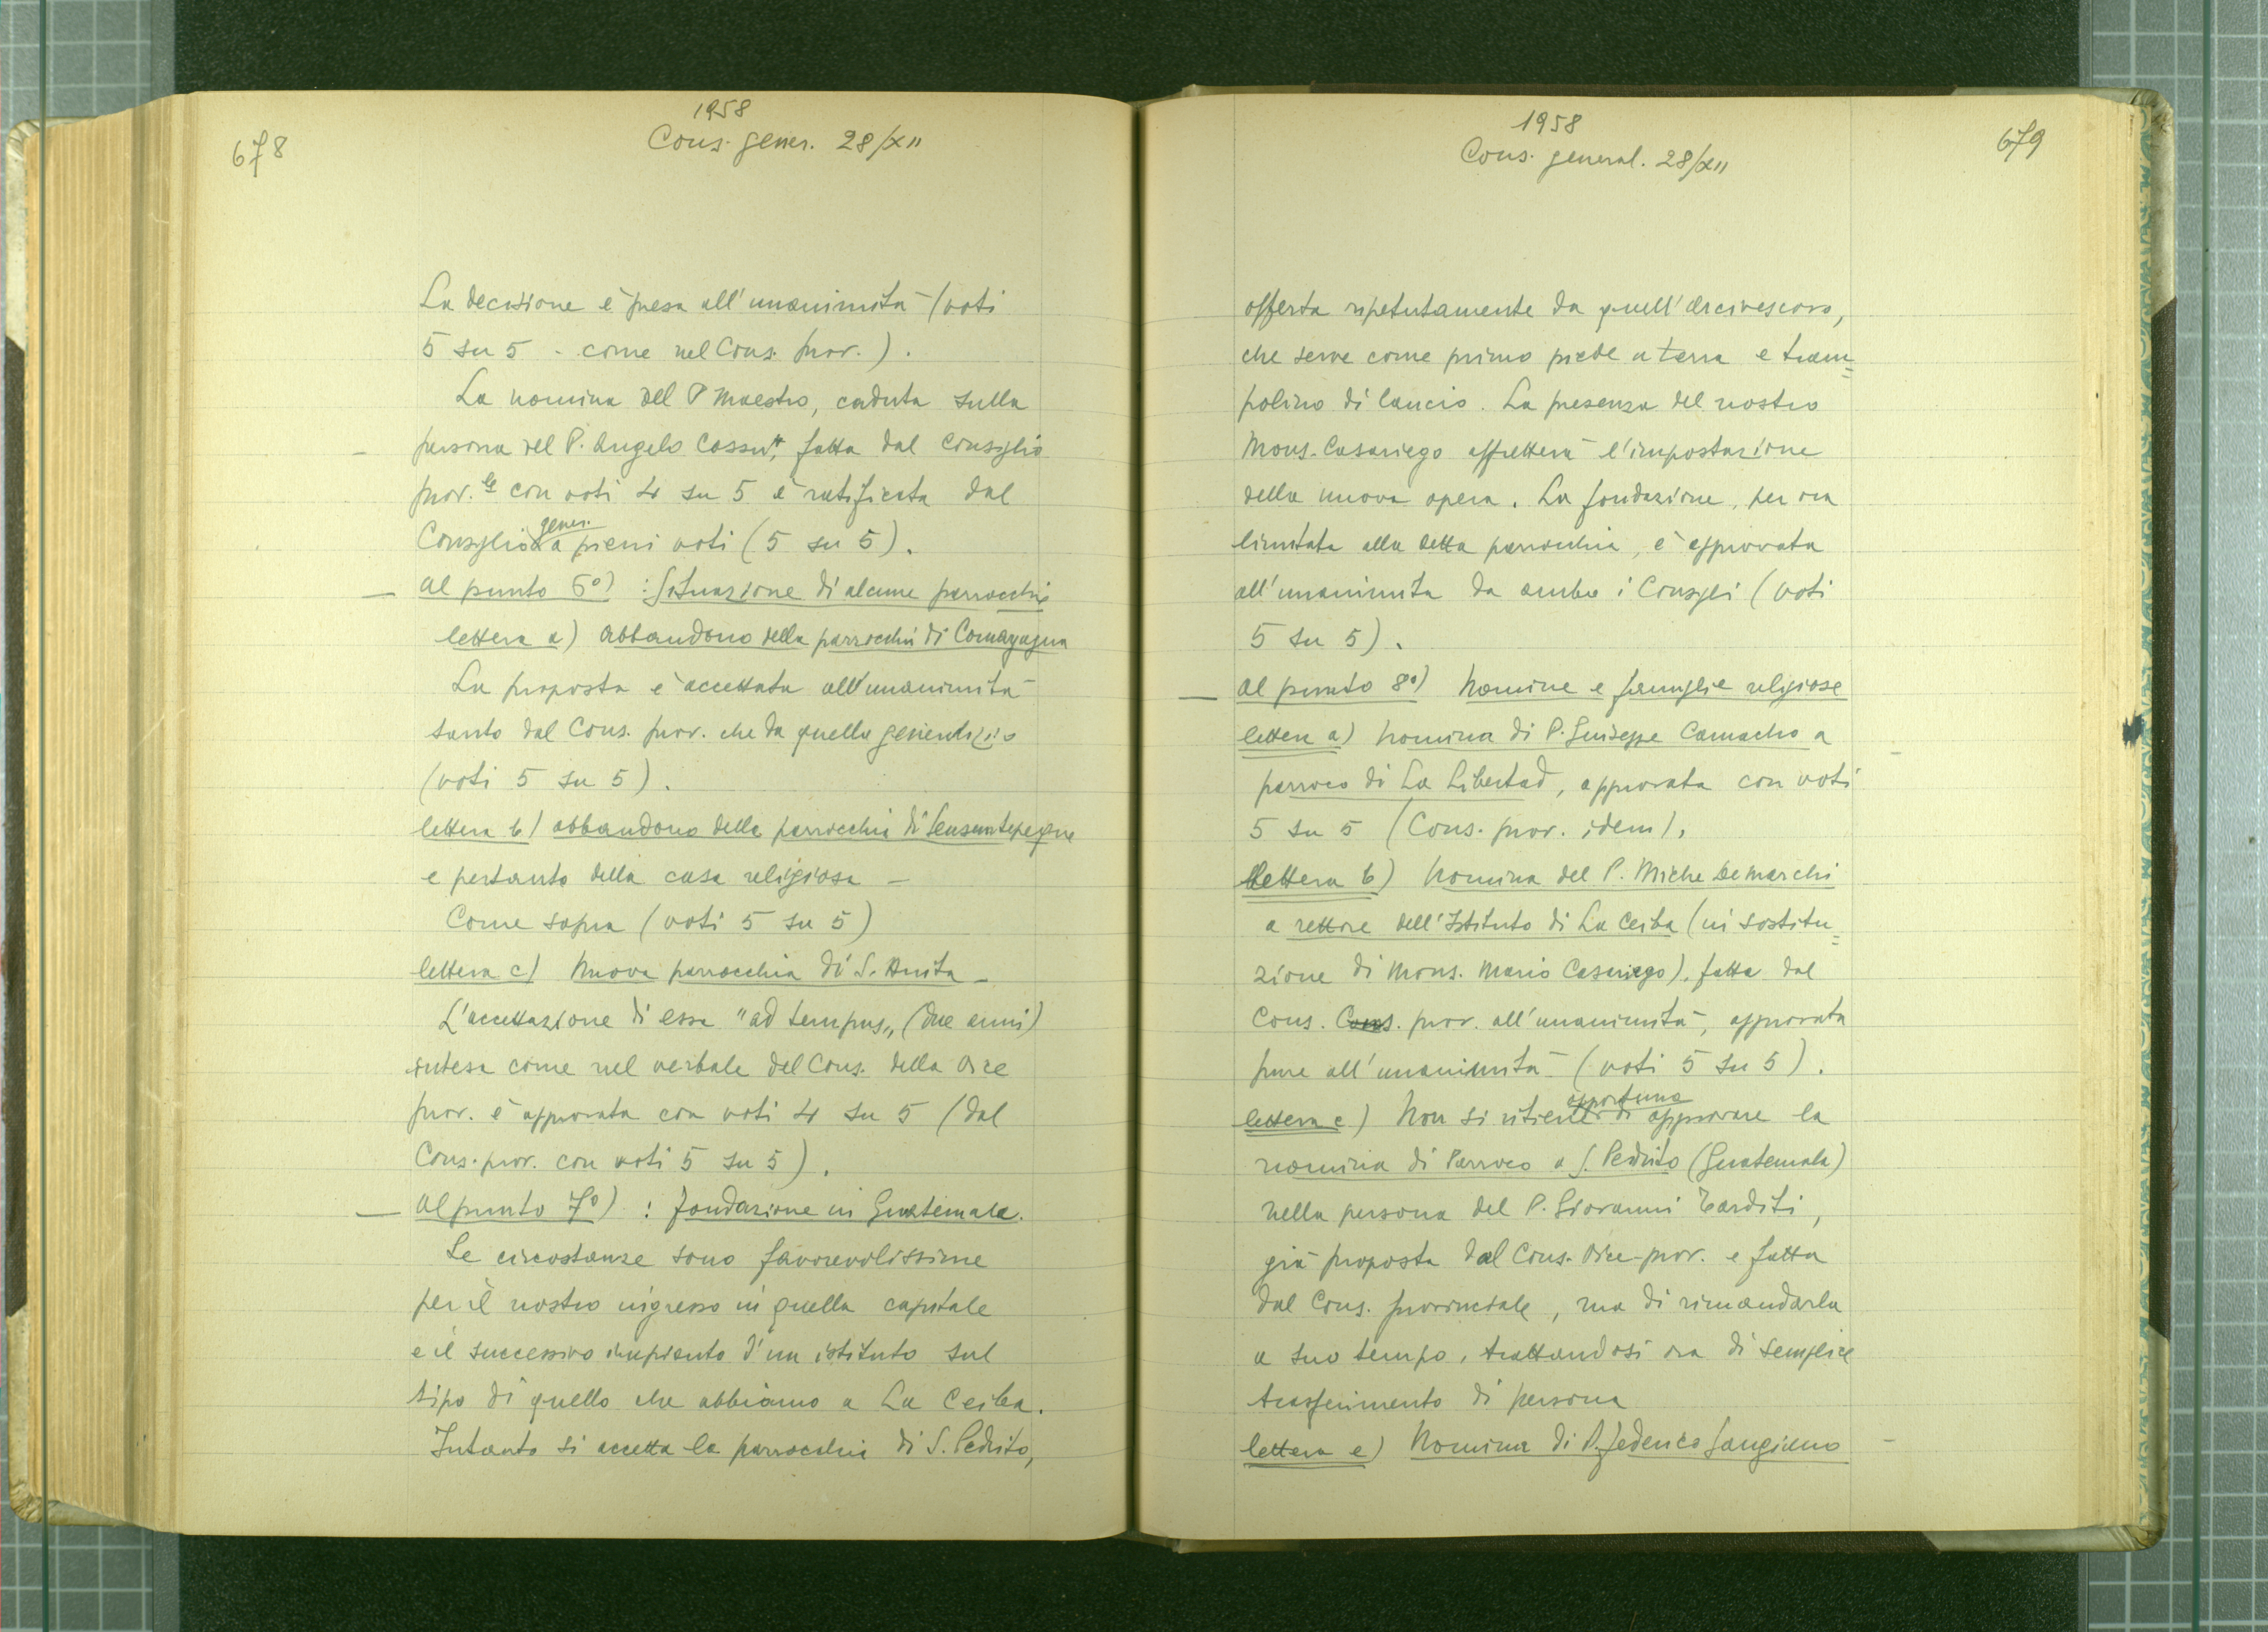 678
1958
Cons. gener. 28/XII
La decisione è presa all'unanimità (voti
5 su 5 - come nel Cons. prov.).
La nomina del P Maestro, caduta sulla
persona del P. Angelo Cossu, fatta dal Consiglio
prov.le con voti 4 su 5 è ratificata dal
Consiglio gener. a pieni voti (5 su 5).
— Al punto 6°) : Situazione di alcune parrocchie
lettera a) Abbandono della parrocchia di Comayagua
La proposta è accettata all'unanimità
tanto dal Cons. prov. che da quello generalizio
(voti 5 su 5).
lettera b) abbandono della parrocchia di Sensuntepeque
e pertanto della casa religiosa —
Come sopra (voti 5 su 5)
lettera c) Nuova parrocchia di S. Anita —
L'accettazione di essa "ad tempus„ (due anni)
intesa come nel verbale del Cons. della Vice
prov. è approvata con voti 4 su 5 (dal
Cons. prov. con voti 5 su 5).
— Al punto 7°) : fondazione in Guatemala.
Le circostanze sono favorevolissime
per il nostro ingresso in quella capitale
e il successivo impianto d'un istituto sul
tipo di quello che abbiamo a La Ceiba.
Intanto si accetta la parrocchia di S. Pedrito,
1958
Cons. general. 28/XII
679
offerta ripetutamente da quell'Arcivescovo,
che serve come primo piede a terra e tram=
polino di lancio. La presenza del nostro
Mons. Casariego affretterà l'impostazione
della nuova opera. La fondazione, per ora
limitata alla detta parrocchia, è approvata
all'unanimità da ambo i Consigli (voti
5 su 5).
— Al punto 8°) Nomine e famiglie religiose
lettera a) Nomina di P. Giuseppe Camacho a
parroco di La Libertad, approvata con voti
5 su 5 (Cons. prov. idem).
lettera b) Nomina del P. Miche Demarchi
a rettore dell'Istituto di La Ceiba (in sostitu=
zione di Mons. Mario Casariego), fatta dal
Cons. Cons. prov. all'unanimità, approvata
pure all'unanimità (voti 5 su 5).
lettera c) Non si ritiene opportuno di approvare la
nomina di Parroco a S. Pedrito (Guatemala)
nella persona del P. Giovanni Tarditi,
già proposta dal Cons. Vice-prov. e fatta
dal Cons. provinciale, ma di rimandarla
a suo tempo, trattandosi ora di semplice
trasferimento di persona
lettera e) Nomina di P. Federico Sangiano